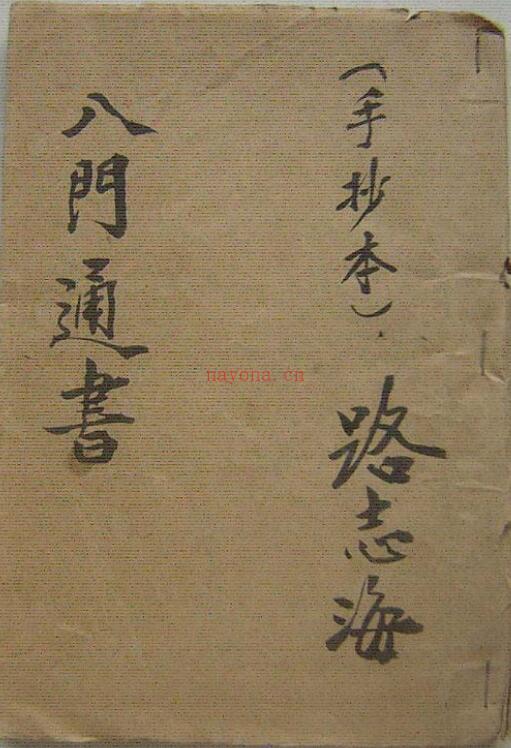 （手抄本）．路志海
八門通書
nayona.cn